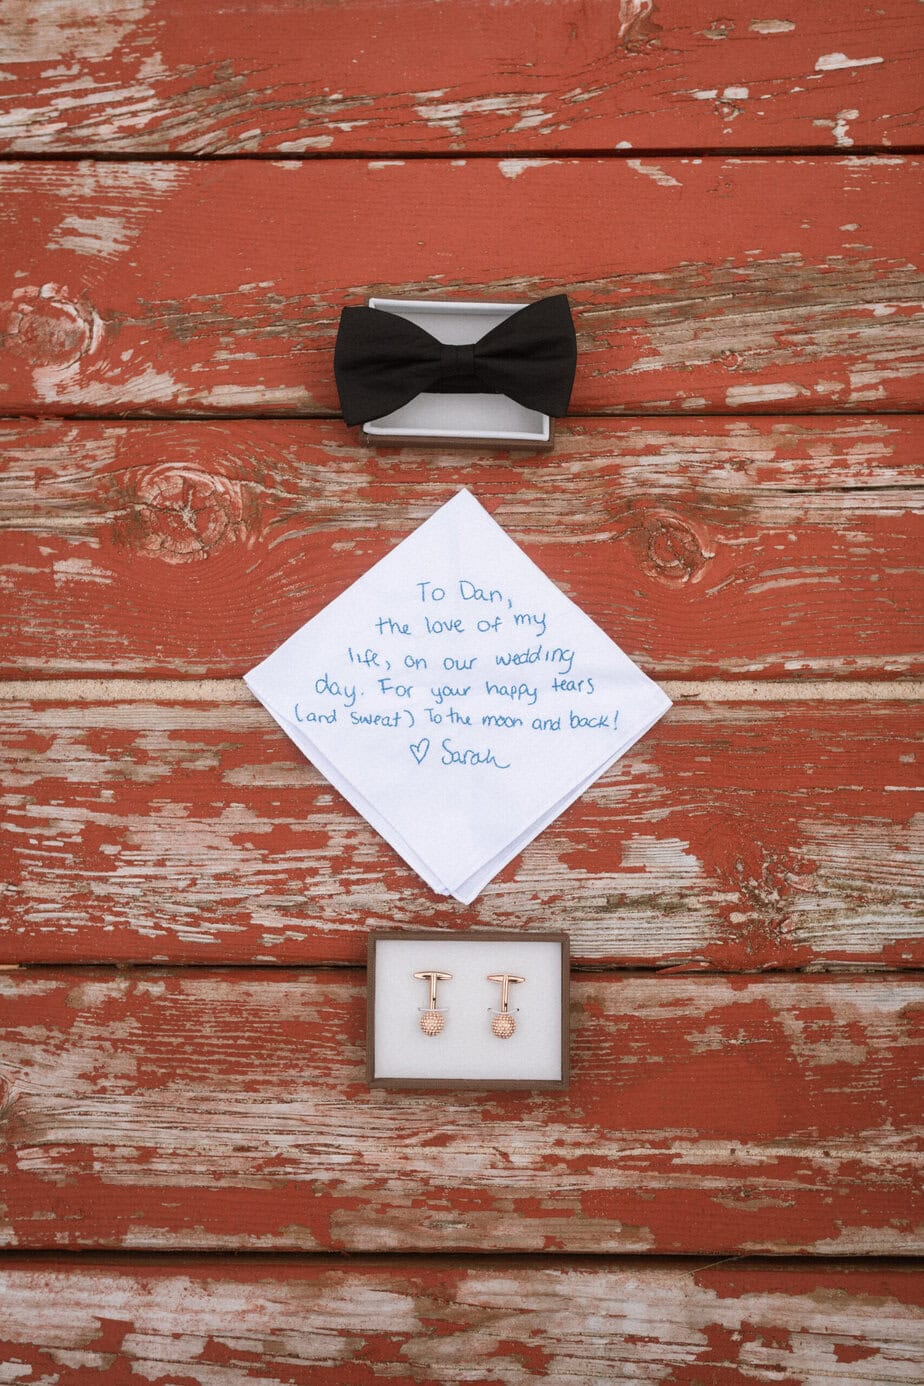 To Dan,
the love of my
life, on our wedding
day. For your happy tears
(and sweat) To the moon and back!
♡ Sarah